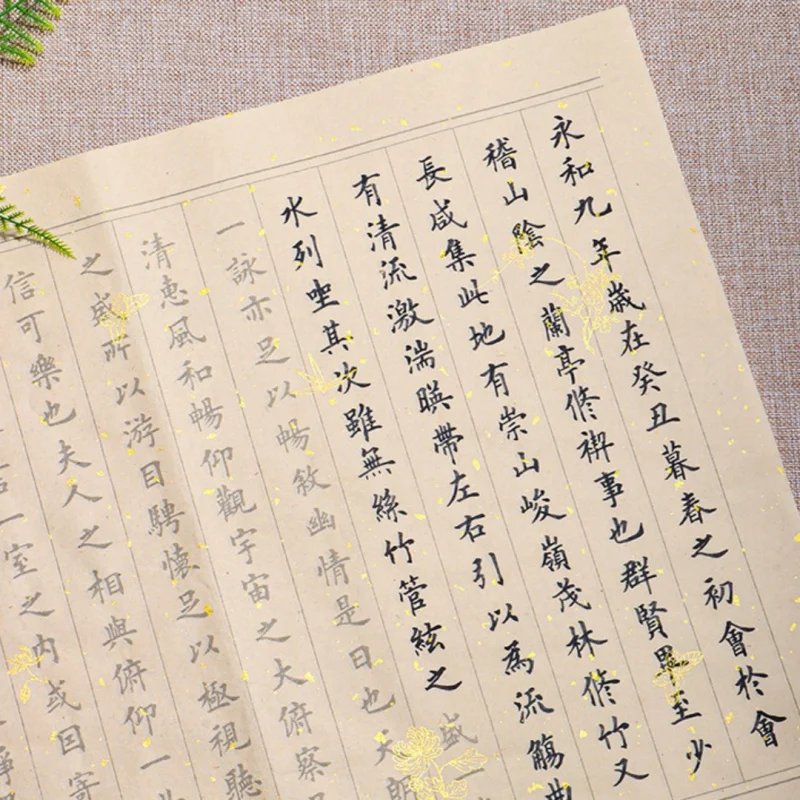 永和九年歲在癸丑暮春之初會於會
稽山陰之蘭亭修禊事也群賢畢至少
長咸集此地有崇山峻嶺茂林修竹又
有清流激湍暎帶左右引以為流觴曲
水列坐其次雖無絲竹管絃之盛一
一詠亦足以暢敘幽情是日也天朗
清惠風和暢仰觀宇宙之大俯察
之盛所以游目騁懷足以極視聽
信可樂也夫人之相與俯仰一
言一室之內或因寄